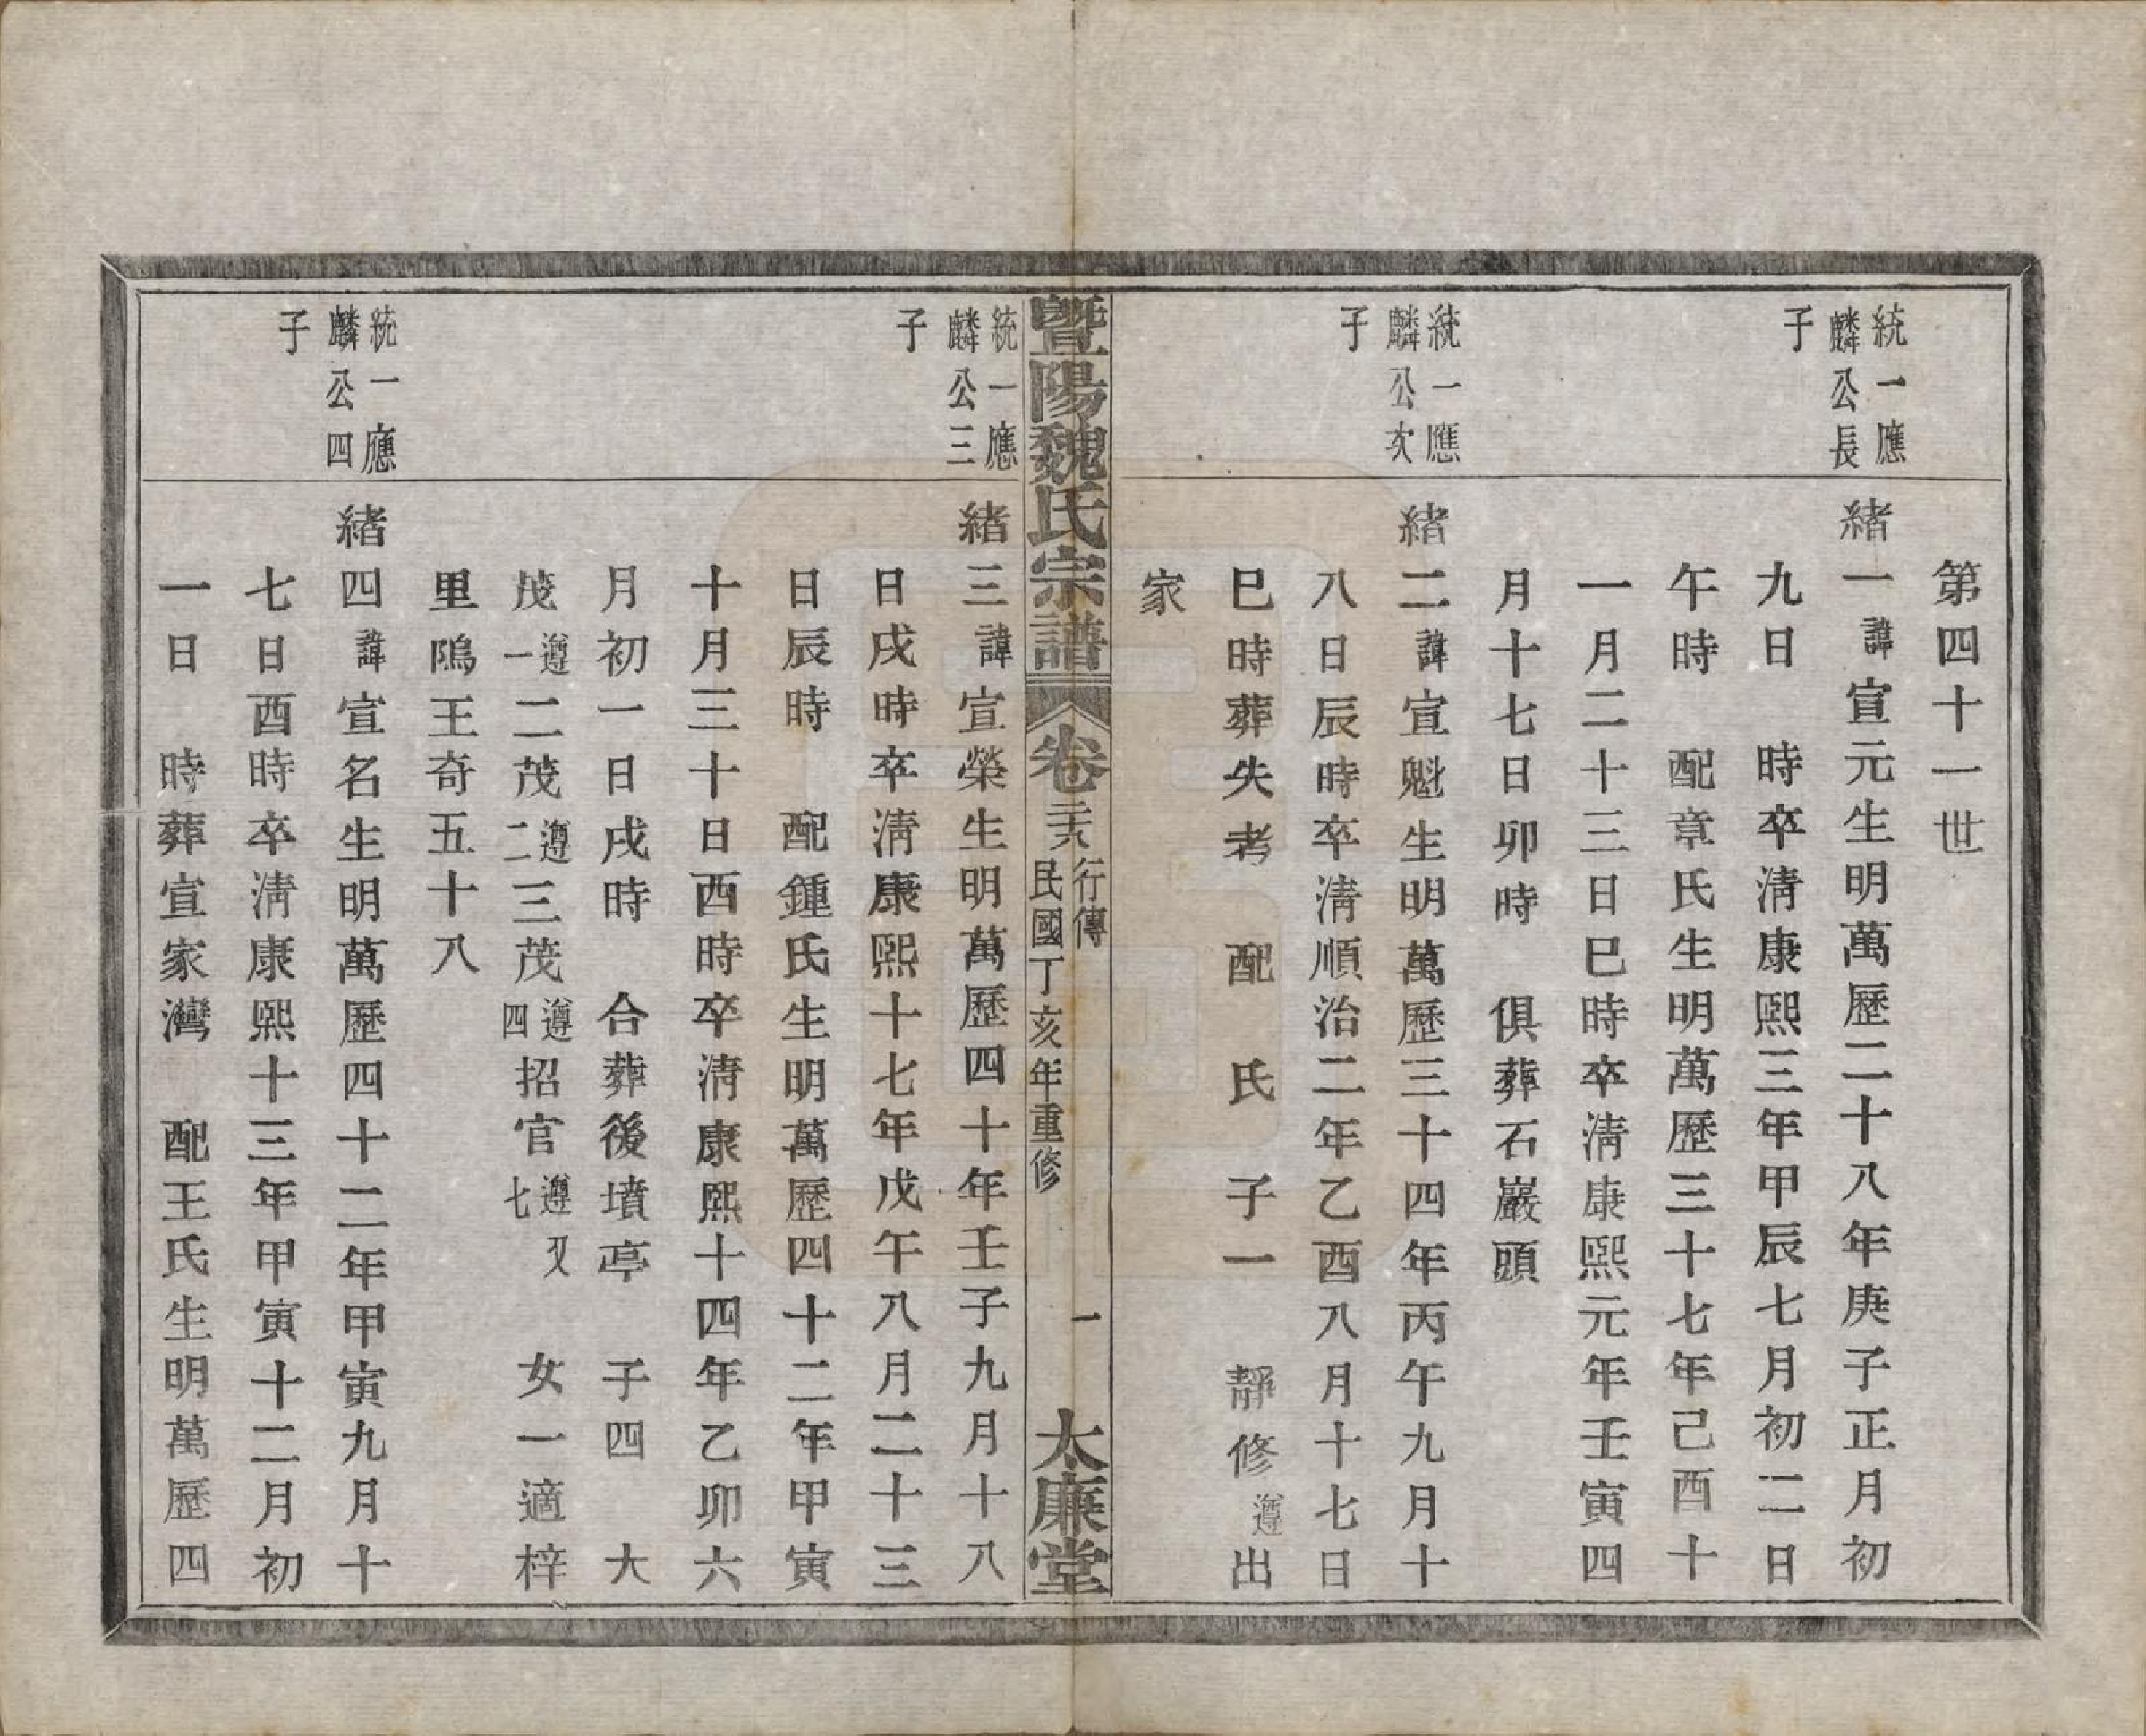 第四十一世
統一應
麟公長
子
緒一諱宣元生明萬歷二十八年庚子正月初
九日　時卒淸康熙三年甲辰七月初二日
午時　配章氏生明萬歷三十七年己酉十
一月二十三日巳時卒淸康熙元年壬寅四
月十七日卯時　俱葬石巖頭
統一應
麟公次
子
緒二諱宣魁生明萬歷三十四年丙午九月十
八日辰時卒淸順治二年乙酉八月十七日
巳時葬失考　配　氏　子一　靜修遵出
家
暨陽魏氏宗譜
卷二十八
行傳
民國丁亥年重修
一
太廉堂
統一應
麟公三
子
緒三諱宣榮生明萬歷四十年壬子九月十八
日戌時卒淸康熙十七年戊午八月二十三
日辰時　配鍾氏生明萬歷四十二年甲寅
十月三十日酉時卒淸康熙十四年乙卯六
月初一日戌時　合葬後墳亭　子四　大
茂遵一二茂遵二三茂遵四招官遵七又　女一適梓
里隖王奇五十八
統一應
麟公四
子
緒四諱宣名生明萬歷四十二年甲寅九月十
七日酉時卒淸康熙十三年甲寅十二月初
一日　時葬宣家灣　配王氏生明萬歷四